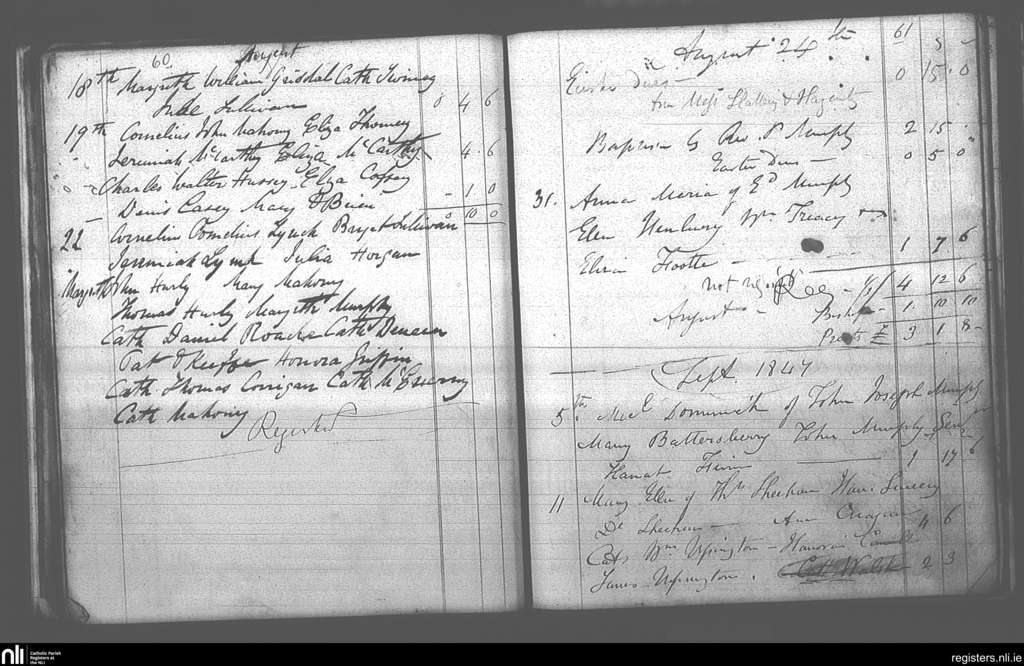 60. August
18th Margreth William Grisdal Cath Twomey
Sullivan 0 4 6
19th Cornelius John Mahony Eliza Thomey
Jeremiah McCarthy Eliza McCarthy 4 6
Charles Walter Hussey Eliza Coffey
Denis Casey Mary O'Brien - 1 0
0 10 0
22 Cornelius Cornelius Lynch Bryst Sullivan
Jeremiah Lynch Julia Horgan
Margreth John Hurly Mary Mahony
Thomas Hurly Margreth Murphy
Cath Daniel Roache Cath
Pat O'Keeffe Honora Griffin
Cath Thomas Corrigan Cath
Cath Mahony
Registered
61
August 24th 5 -
Easter Dues 0 15 0
from Messrs Slattery & Hagerity
Baptism by Rev. P. Murphy 2 15
Easter Dues - 0 5 0
31. Anna Maria of Ed Murphy
Ellen Henbury Wm Treacy
Eliza Footte 1 7 6
not regist 4 12 6
August - Bishop - 1 10 10
Priests £ 3 1 8
Sept. 1847
5th Michl Dominick of John Joseph Murphy
Mary Battersberry John Murphy Senr
1 17 6
11 Mary Ellen of Thos Sheehan Han. Sweeny
Ds Sheehan - Ann 4 6
Cath Wm Upington - Hanora
James Upington. Cath Walsh 2 3
NLI Catholic Parish Registers at the NLI
registers.nli.ie